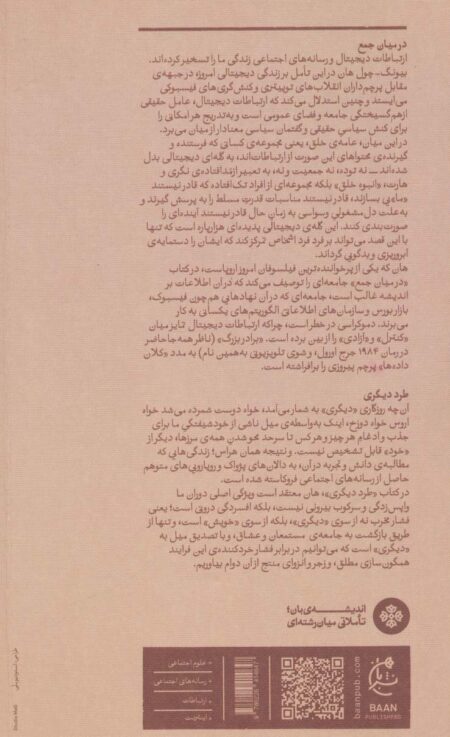 در میان جمع
ارتباطات دیجیتال و رسانه‌های اجتماعی زندگی ما را تسخیر کرده‌اند.
بیونگ-چول هان در این تأمل بر زندگی دیجیتالی امروز، در جبهه‌ی
مقابل پرچم‌داران انقلاب‌های توییتری و کنش‌گری‌های فیسبوکی
می‌ایستد و چنین استدلال می‌کند که ارتباطات دیجیتال، عامل حقیقی
ازهم‌گسیختگی جامعه و فضای عمومی است و به‌تدریج هر امکانی را
برای کنش سیاسی حقیقی و گفتمان سیاسی معنادار از میان می‌برد.
در این میان، عامه‌ی خلق، یعنی مجموعه‌ی کسانی که فرستنده و
گیرنده‌ی محتواهای این صورت از ارتباطات‌اند، به گله‌ای دیجیتالی بدل
شده‌اند — نه توده، نه جمعیت و نه، به تعبیر ازمدافتاده‌ی نگری و
هارت، «انبوه خلق» بلکه مجموعه‌ای از افراد تک‌افتاده که قادر نیستند
«ما»یی بسازند، قادر نیستند مناسبات قدرتِ مسلط را به پرسش گیرند و
به علت دل‌مشغولی وسواسی به زمانِ حال قادر نیستند آینده‌ای را
صورت‌بندی کنند. این گله‌ی دیجیتالی پدیده‌ای هزارپاره است که تنها
با این قصد می‌تواند بر فرد فرد اشخاص تمرکز کند که ایشان را دستمایه‌ی
آبروریزی و بدگویی گرداند.
هان که یکی از پرخواننده‌ترین فیلسوفان امروز اروپاست، در کتاب
«در میان جمع» جامعه‌ای را توصیف می‌کند که در آن اطلاعات بر
اندیشه غالب است، جامعه‌ای که در آن نهادهایی هم‌چون فیسبوک،
بازار بورس و سازمان‌های اطلاعاتی الگوریتم‌های یکسانی به کار
می‌برند. دموکراسی در خطر است، چراکه ارتباطات دیجیتال تمایز میان
«کنترل» و «آزادی» را از بین برده است. «برادر بزرگ» (ناظر همه‌جاحاضر
در رمان ۱۹۸۴ جرج اورول، و شوی تلویزیونی به همین نام) به مدد «کلان
داده‌ها» پرچم پیروزی را برافراشته است.
طرد دیگری
آن‌چه روزگاری «دیگری» به شمار می‌آمد، خواه دوست شمرده می‌شد خواه
اروس خواه دوزخ، اینک به‌واسطه‌ی میل ناشی از خودشیفتگیِ ما برای
جذب و ادغام هر چیز و هر کس تا سرحد محو شدن همه‌ی مرزها، دیگر از
«خود» قابل تشخیص نیست. و نتیجه همان هراس؛ زندگی‌هایی که
مطالبه‌ی دانش و تجربه در آن، به دالان‌های پژواک و رویارویی‌های متوهم
حاصل از رسانه‌های اجتماعی فروکاسته شده است.
در کتاب «طرد دیگری»، هان معتقد است ویژگی اصلی دوران ما
واپس‌زدگی و سرکوب بیرونی نیست، بلکه افسردگی درونی است؛ یعنی
فشار مخرب نه از سوی «دیگری»، بلکه از سوی «خویش» است، و تنها از
طریق بازگشت به جامعه‌ی مستمعان و عشاق، و با تصدیق میل به
«دیگری» است که می‌توانیم در برابر فشار خردکننده‌ی این فرایند
همگون‌سازی مطلق، و زجر و انزوای منتج از آن دوام بیاوریم.
اندیشه‌ی بان؛
تأملاتی میان‌رشته‌ای
• علوم اجتماعی
• رسانه‌های اجتماعی
• ارتباطات
• اینترنت
baanpub.com
نشر بان
BAAN
PUBLISHERS
Studio Melli